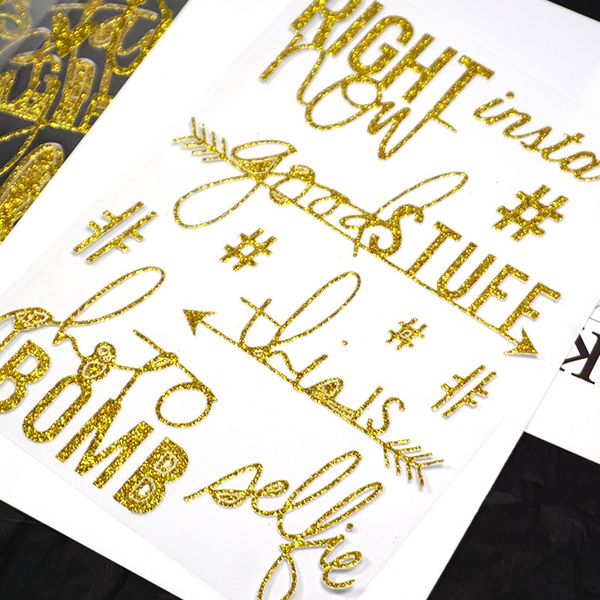 RIGHT
now
insta
good STUFF
#
#
#
this IS
#
#
photo
BOMB
selfie
k